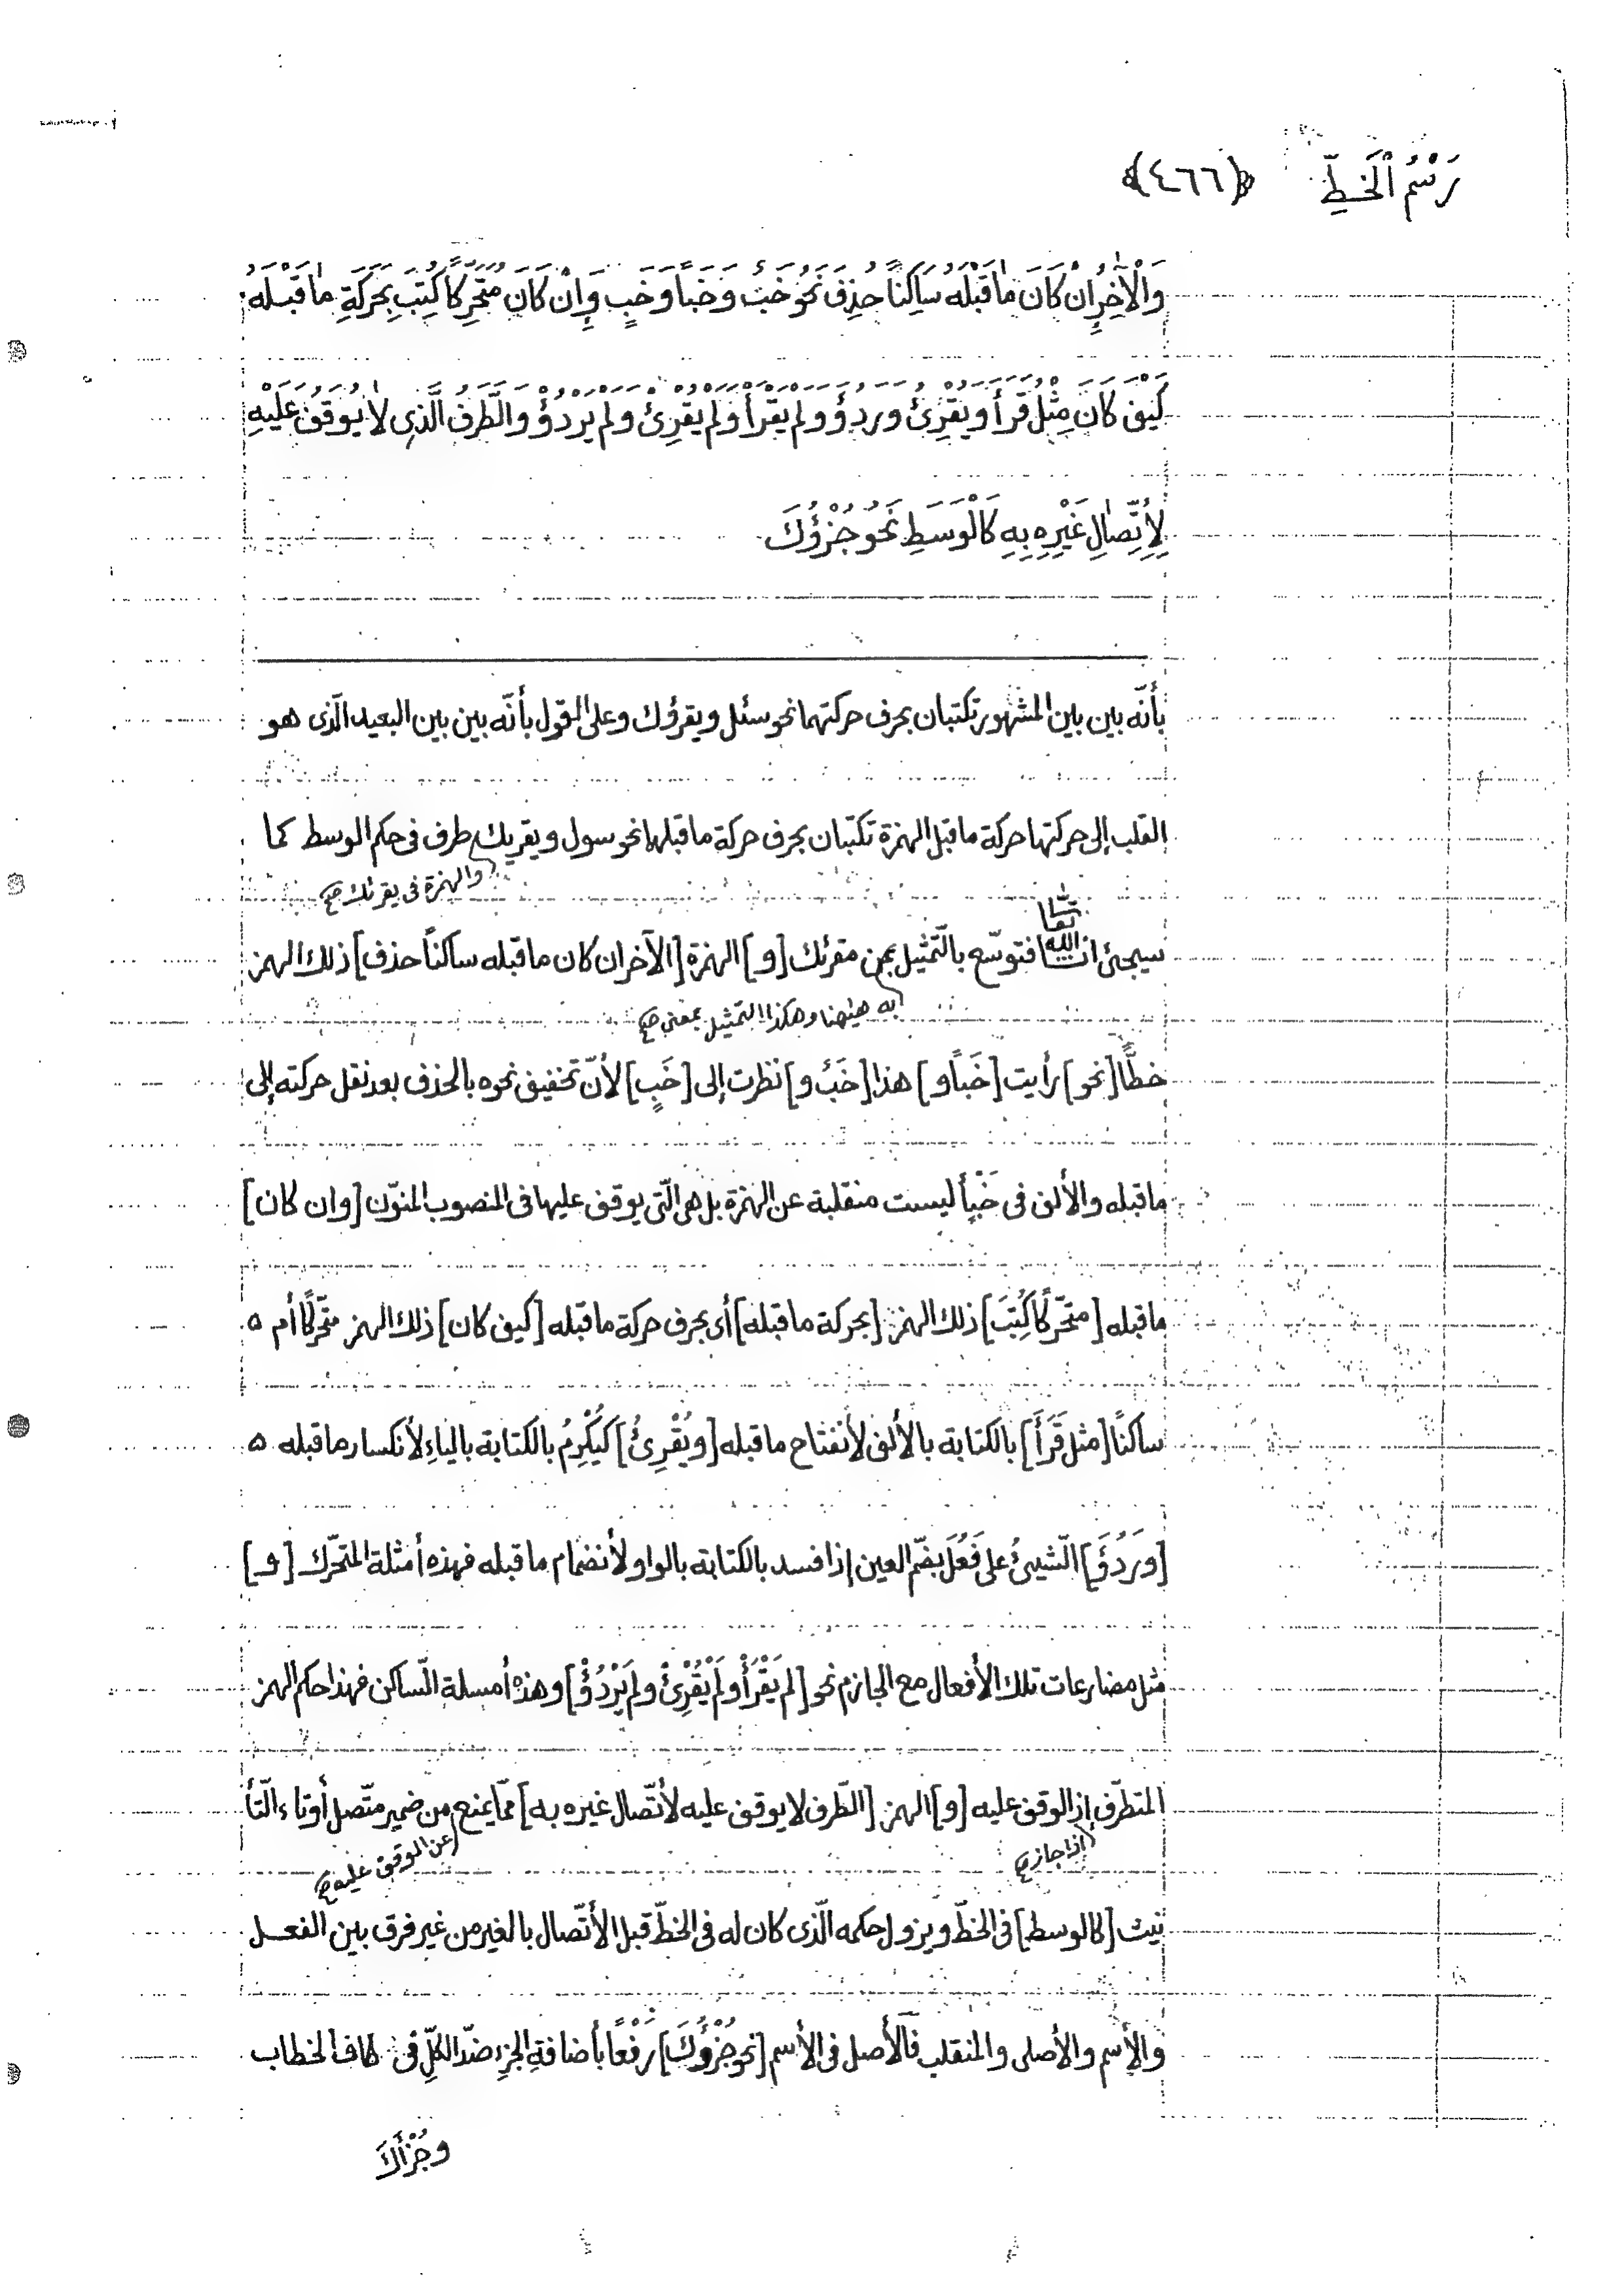 رَسْمُ ٱلْخَطِّ ﴿٤٦٦﴾
وَالْآخِرُ إِنْ كَانَ مٰا قَبْلَهُ سٰاكِنًا حُذِفَ نَحْوُ خَبْءٌ وَ خَبْاً وَ خَبٍ وَ إِنْ كَانَ مُتَحَرِّكًا كُتِبَ بِحَرَكَةِ مٰا قَبْلَهُ
كَيْفَ كَانَ مِثْلُ قَرَأَ وَ يُقْرِئُ وَ رَدُؤَ وَ لَمْ يَقْرَأْ وَ لَمْ يُقْرِئْ وَ لَمْ يَرْدُؤْ وَ الطَّرَفُ الَّذِى لٰا يُوقَفُ عَلَيْهِ
لِأِتِّصٰالِ غَيْرِهِ بِهِ كَالْوَسَطِ نَحْوُ جُزْؤُكَ
بأنّه بين بين المشهور تكتبان بحرف حركتهما نحو سئل و يقرؤك و على القول بأنّه بين بين البعيد الّذى هو
القلب إلى حركتها حركة ما قبل الهمزة تكتبان بحرف حركة ما قبلها نحو سول و يقريك طرف فى حكم الوسط كما
والهمزة فى يقرئك صح
سيجئ انشا الله تعا فتوسّع بالتّمثيل بمن مقرئك [و] الهمزة [الآخر ان كان ما قبله ساكناً حذف] ذلك الهمز
به هيٰهنا و هكذا التمثيل بمعنى صح
خطًّا [نحو] رأيت [خَباً و] هذا [خَبٌ و] نظرت إلى [خَبٍ] لأنّ تخفيف نحوه بالحذف بعد نقل حركته إلى
ما قبله و الألف فى خَبْأً ليست منقلبة عن الهمزة بل هى الّتى يوقف عليها فى المنصوب المنوّن [و ان كان]
ما قبله [متحّركًا كُتِبَ] ذلك الهمز [بحركة ما قبله] أى بحرف حركة ما قبله [كيف كان] ذلك الهمز متحّركًا أم ٥
ساكنًا [مثل قَرَأَ] بالكتابة بالألف لأنفتاح ما قبله [و يُقْرِئُ] كَيُكْرِمُ بالكتابة بالياءِ لأنكسار ما قبله ٥
[و رَدُؤَ] الّشيئُ على فَعُلَ بضّم العين إذا فسد بالكتابة بالواو لأنضمام ما قبله فهذه أمثلة المتحّرك [و]
مثل مضارعات تلك الأفعال مع الجازم نحو [لم يَقْرَأْ و لَمْ يُقْرِئْ و لم يَرْدُؤْ] و هذه أمسلة الّساكن فهذا حكم الهمز
المتطّرف إذ الوقف عليه [و] الهمز [الطّرف لا يوقف عليه لأتّصال غيره به] ممّا يمنع من ضمير متّصل أو تاء الّتأ
إذا جاز صح
عن الوقف عليه صح
نيث [كالوسط] فى الخطّ و يزول حكمه الّذى كان له فى الخطّ قبل الأتّصال بالغير من غير فرق بين الفعـل
و الإسم و الأصلى و المنقلب فالأصل فى الأسم [نحو جُزْؤُكَ] رَفْعًا بأضافةِ الجزءِ ضدّ الكلِّ فى كاف الخطاب
و جُزْأَكَ